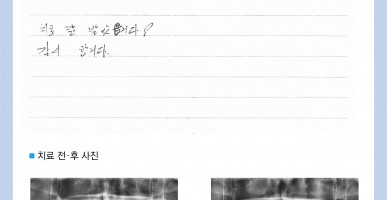 치료 잘 받았습니다!
감사 합니다.
■ 치료 전·후 사진